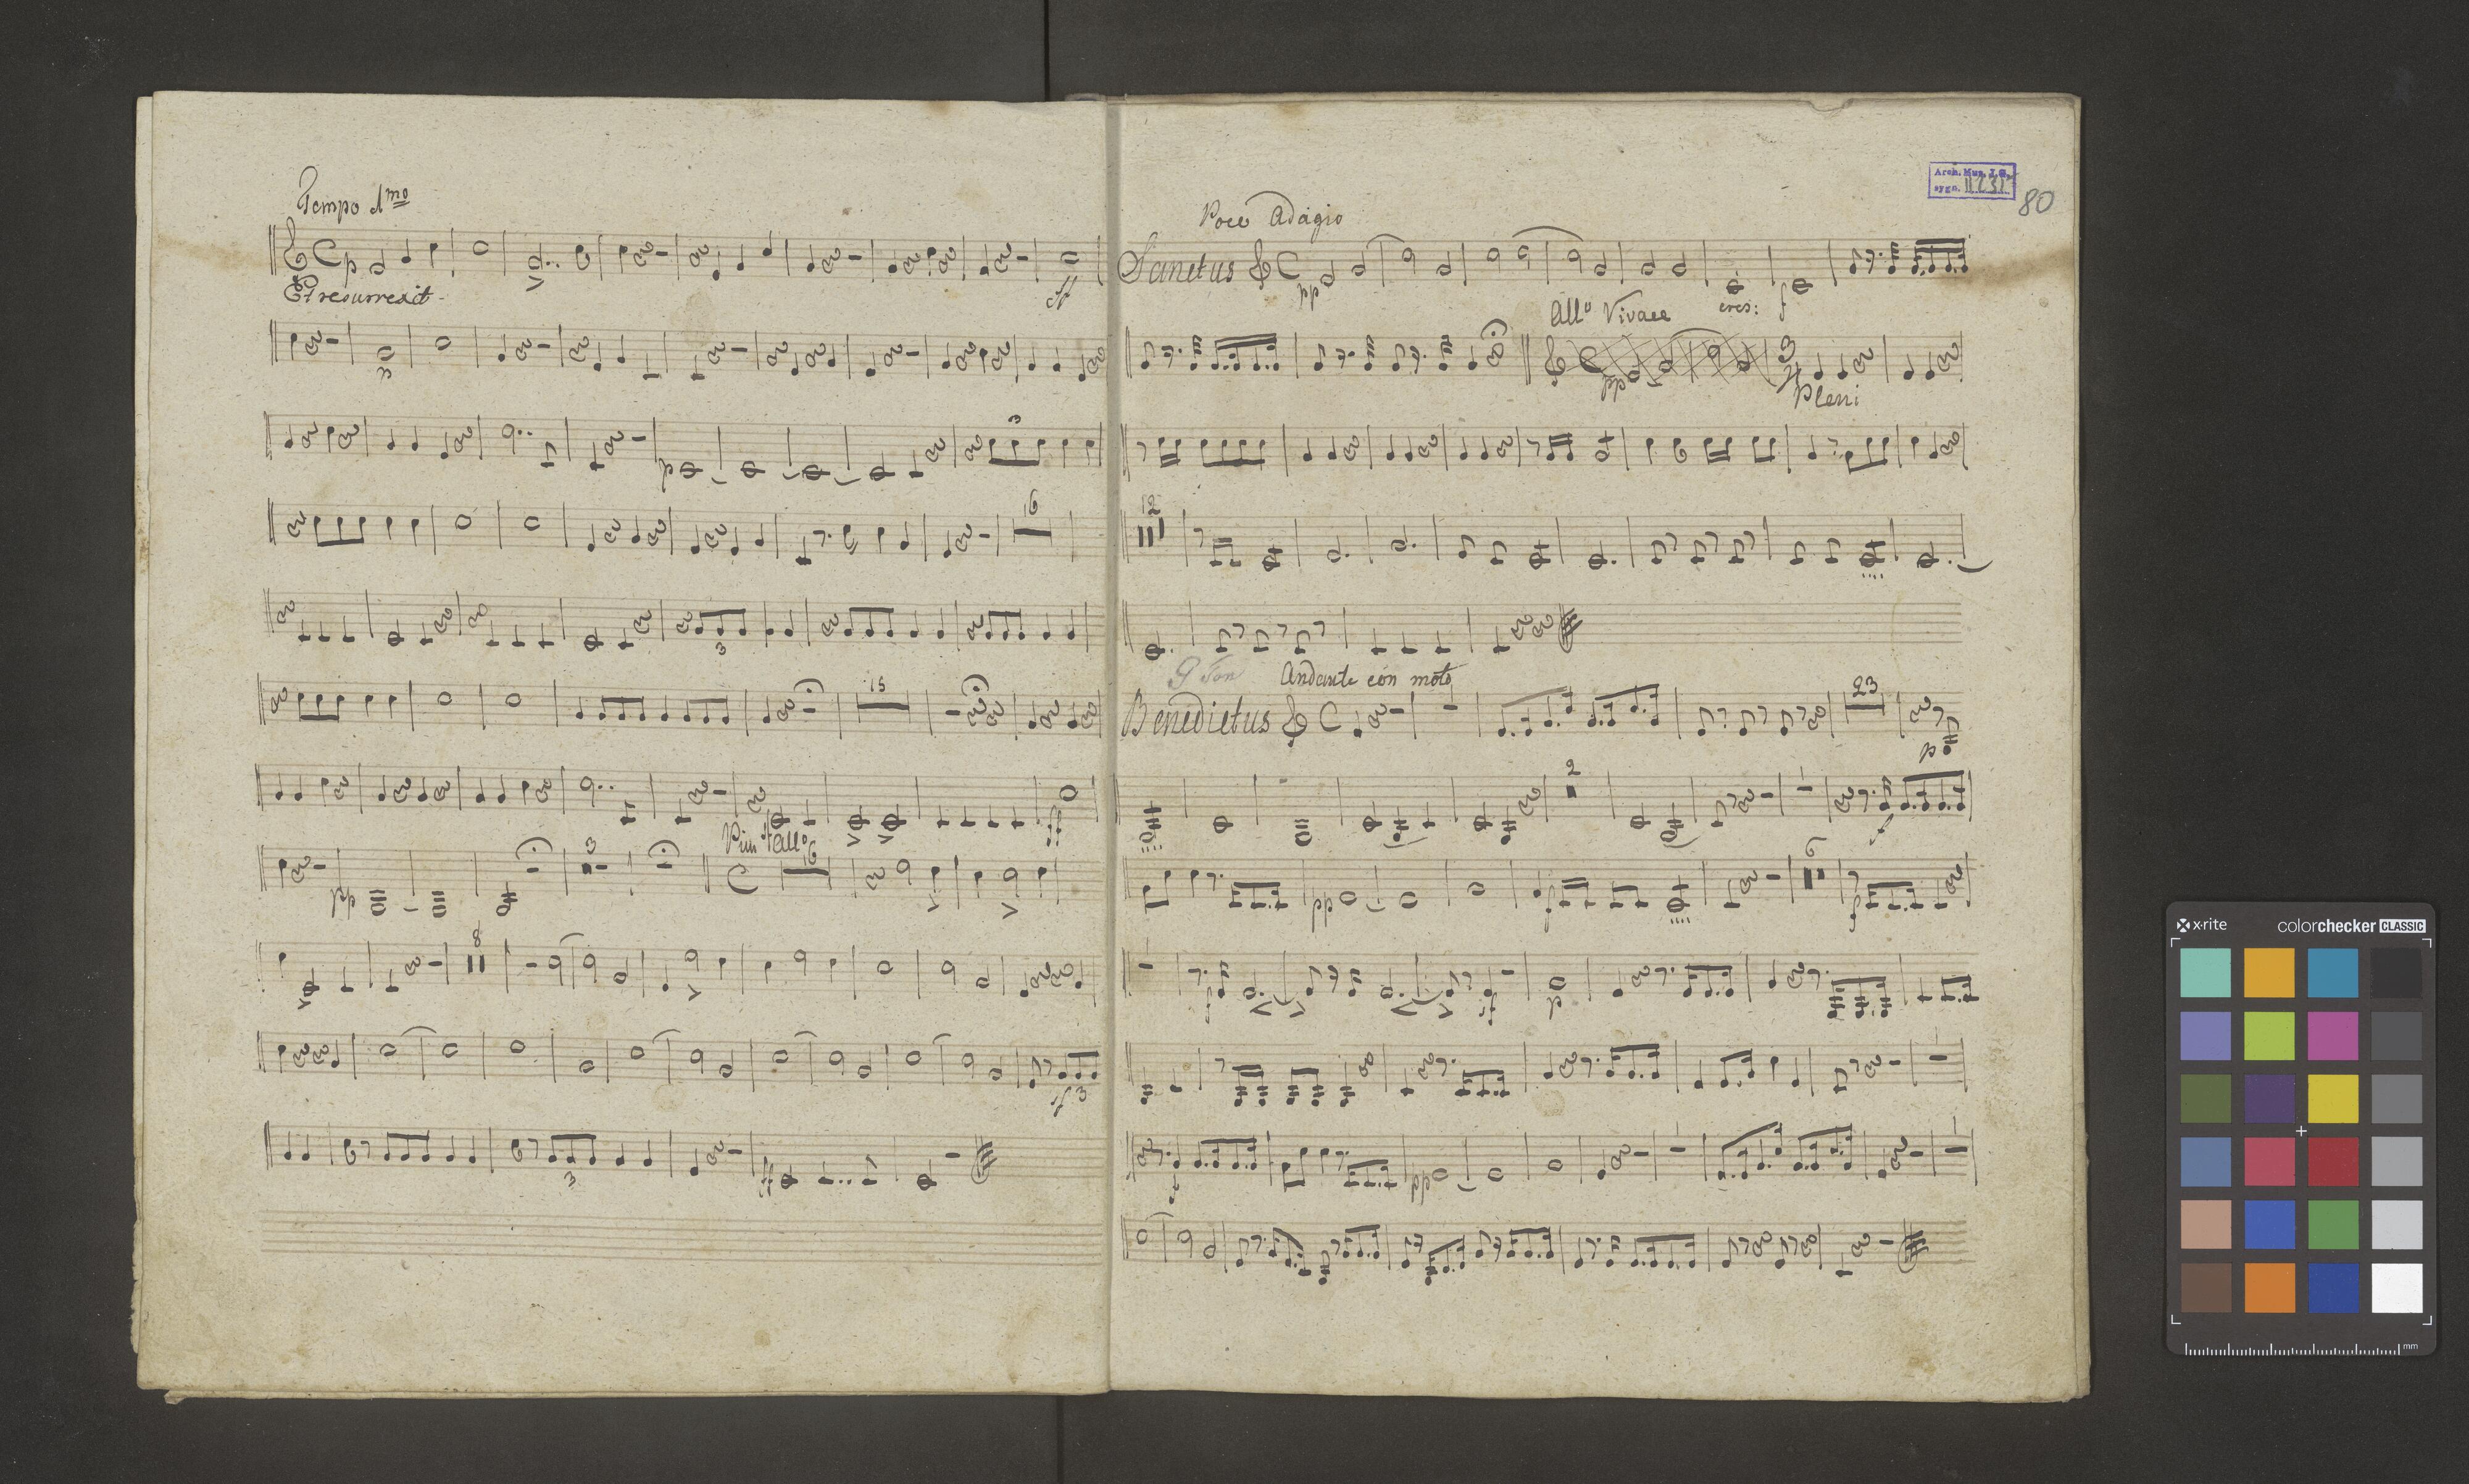 Tempo 1mo
p
Et resurrexit
ff
3
p
16
3
15
ff
Piu Allo
16
3
pp
8
ff 3
3
ff
Arch. Mus. J.G.
sygn. II 232
80
Poco Adagio
Sanctus
pp
cres: f
Allo Vivace
pp
3
4
Pleni
12
G Ton Andante con moto
Benedictus
23
p
2
f
pp f 6 f
f
p
pp
x·rite colorchecker CLASSIC
mm